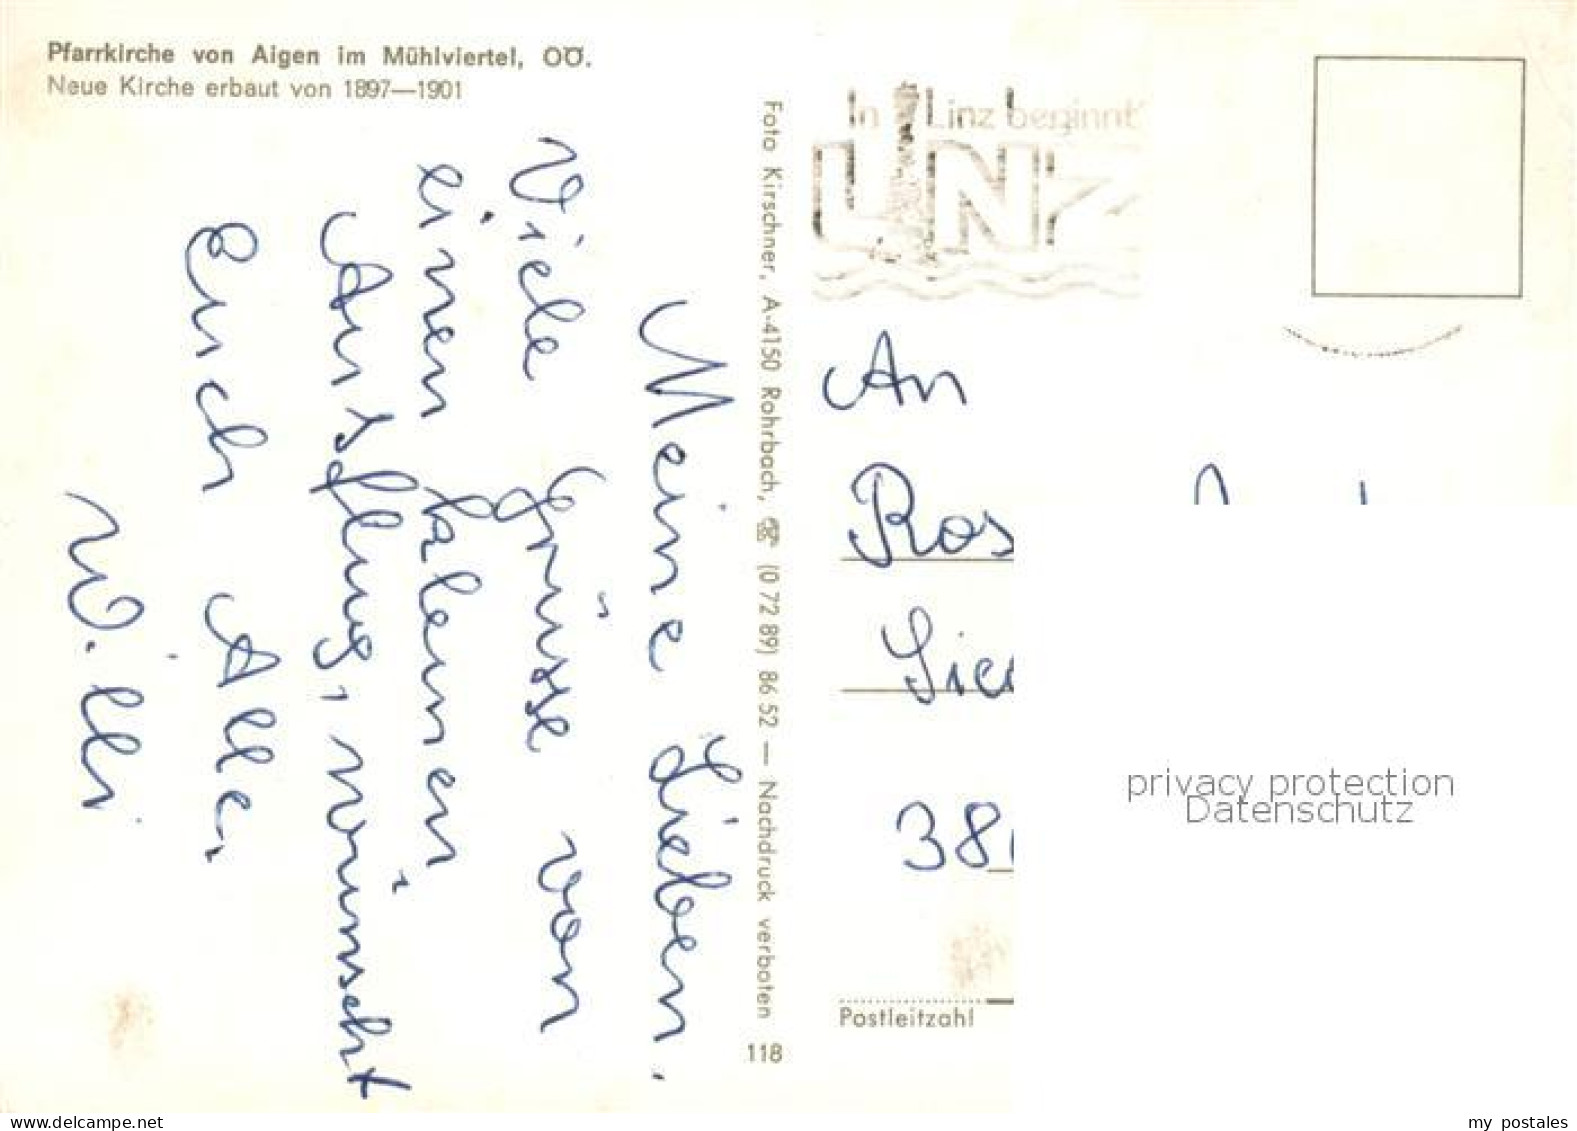 Pfarrkirche von Aigen im Mühlviertel, OÖ.
Neue Kirche erbaut von 1897—1901
Meine Lieben.
Viele Grüsse von
einen kleinen
Ausflug, wünscht
Euch Allen
Willi
Foto Kirschner, A-4150 Rohrbach, ☏ (0 72 89) 86 52 — Nachdruck verboten
118
In Linz beginnt's
LINZ
An
Ros
38
Postleitzahl
privacy protection
Datenschutz
www.delcampe.net
my postales